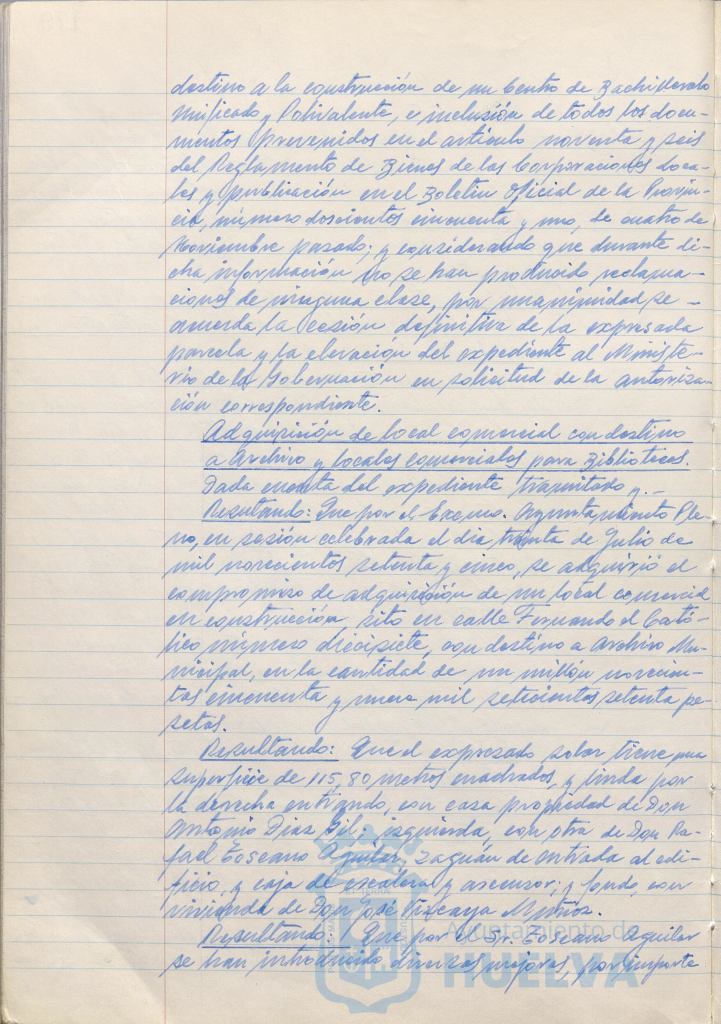 destino a la construcción de un Centro de Bachillerato
Unificado y Polivalente, e inclusión de todos los docu-
mentos prevenidos en el artículo noventa y seis
del Reglamento de Bienes de las Corporaciones Loca-
les y publicación en el Boletín Oficial de la Provin-
cia, número doscientos cincuenta y uno, de cuatro de
Noviembre pasado; y considerando que durante di-
cha información no se han producido reclama-
ciones de ninguna clase, por unanimidad se -
acuerda la cesión definitiva de la expresada
parcela y la elevación del expediente al Ministe-
rio de la Gobernación en solicitud de la autoriza-
ción correspondiente.
Adquisición de local comercial con destino
a Archivo y locales comerciales para Bibliotecas.
Dada cuenta del expediente tramitado y.-
Resultando: Que por el Excmo. Ayuntamiento Ple-
no, en sesión celebrada el día treinta de Julio de
mil novecientos setenta y cinco, se adquirió el
compromiso de adquisición de un local comercial
en construcción, sito en calle Fernando el Cató-
lico número diecisiete, con destino a Archivo Mu-
nicipal, en la cantidad de un millón novecien-
tas cincuenta y nueve mil setecientas setenta pe-
setas.
Resultando: Que el expresado solar tiene una
superficie de 115,80 metros cuadrados, y linda por
la derecha entrando, con casa propiedad de Don
Antonio Díaz Gil; izquierda, con otra de Don Ra-
fael Toscano Aguilar, zaguán de entrada al edi-
ficio, y caja de escaleras y ascensor; y fondo, con
vivienda de Don José Vizcaya Muñoz.
Resultando: Que por el Sr. Toscano Aguilar
se han introducido diversas mejoras, por importe
Ayuntamiento de
HUELVA